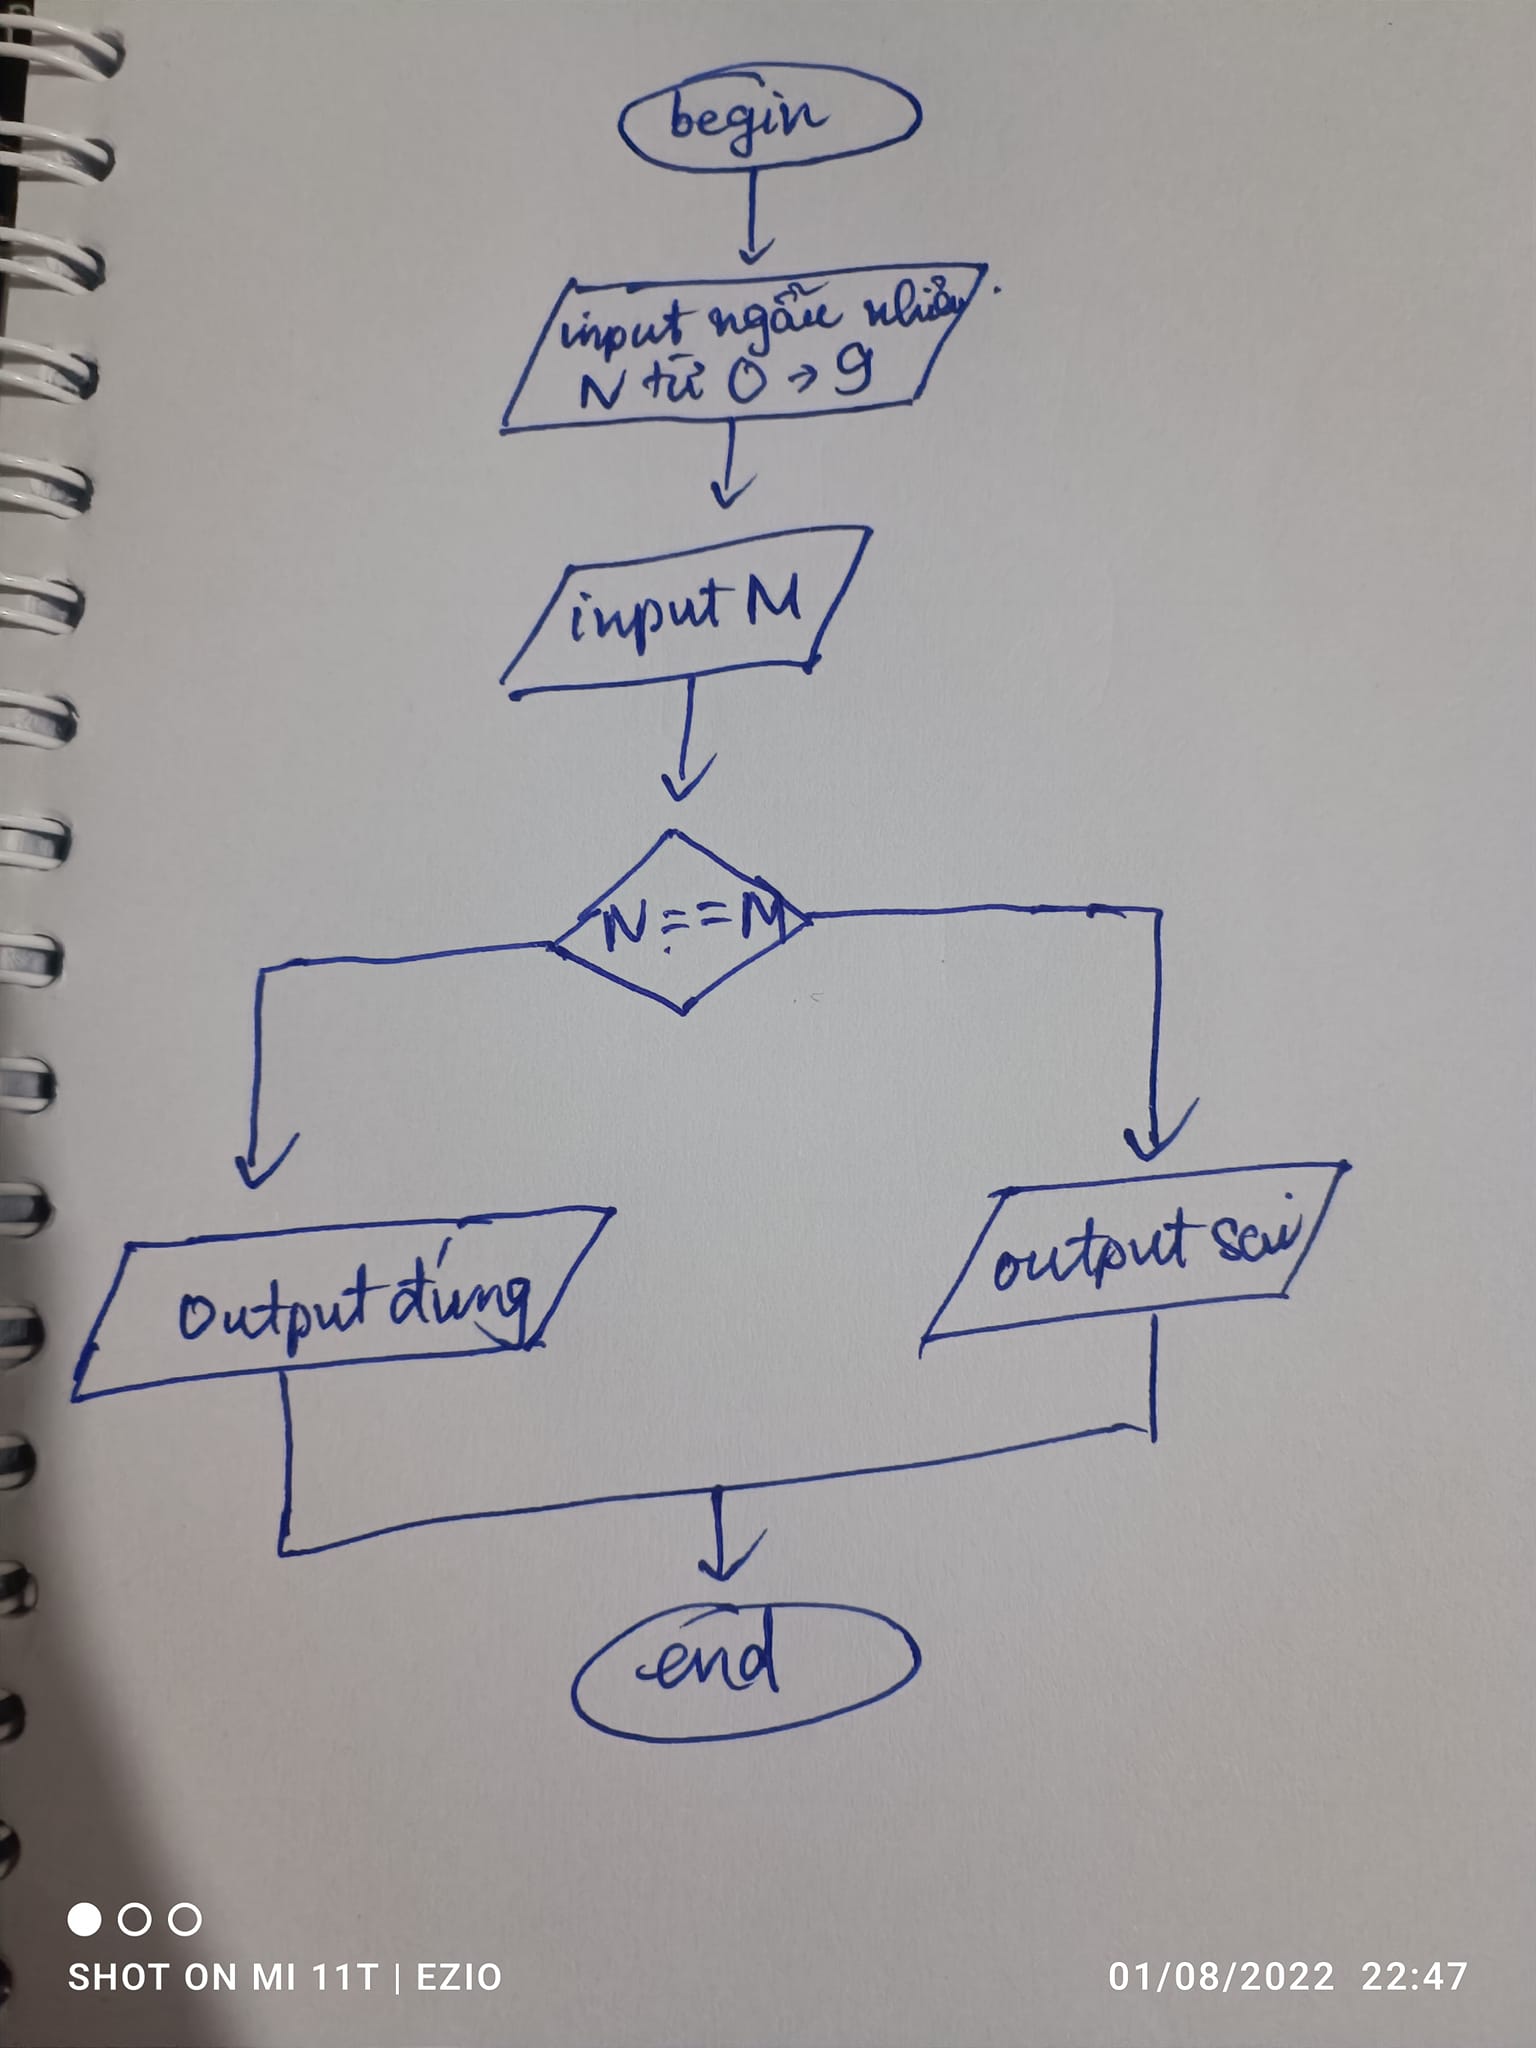 begin
input ngẫu nhiên
N từ 0 → 9
input M
N == M
Output đúng
output sai
end
SHOT ON MI 11T | EZIO
01/08/2022 22:47